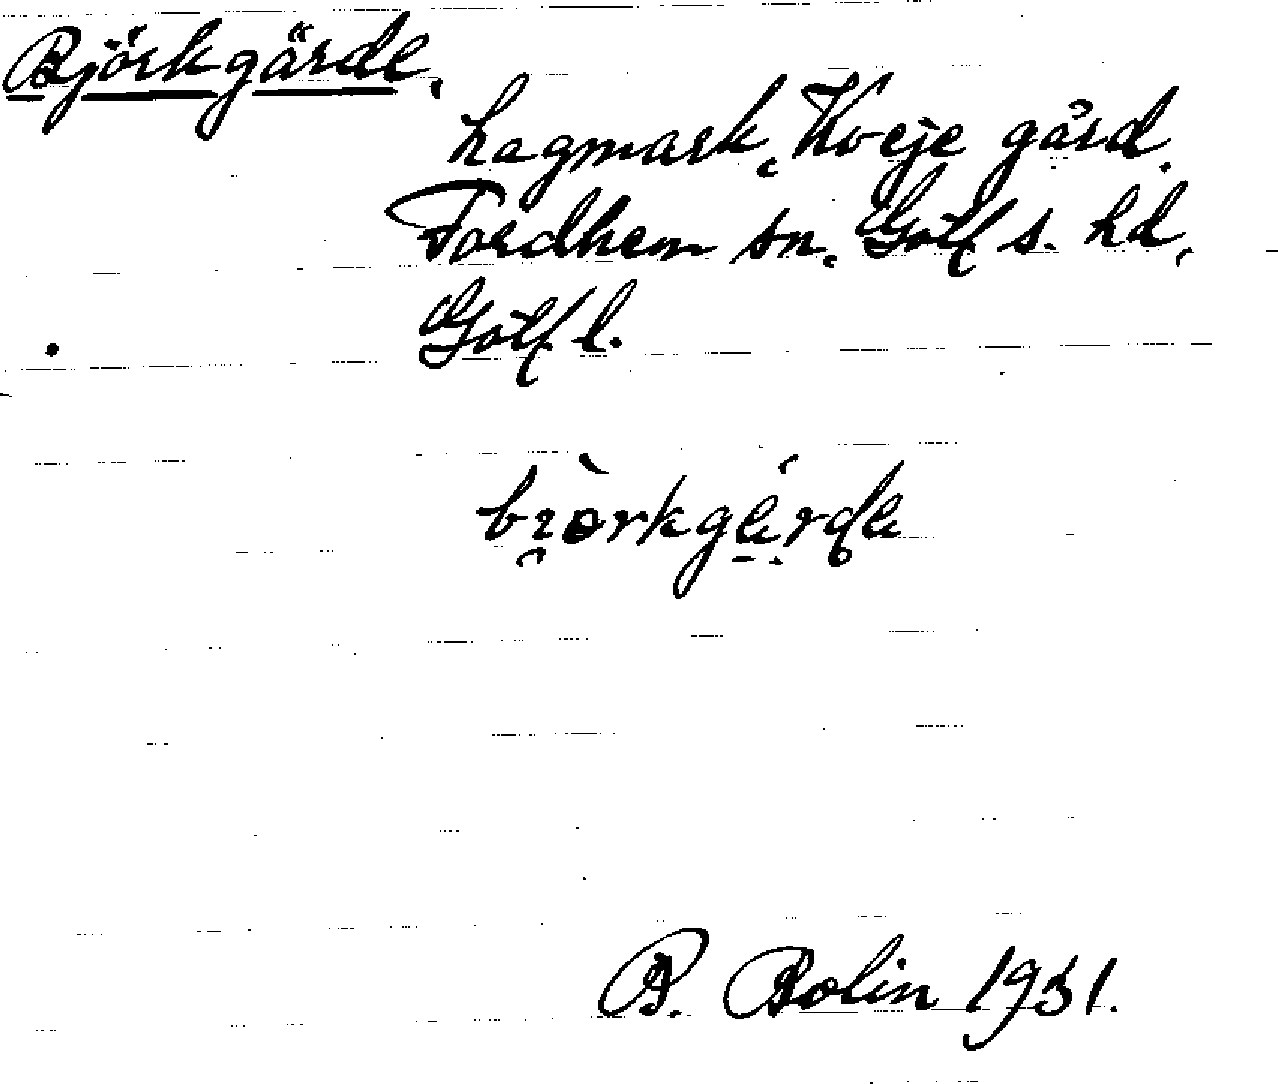 Björkgärde,
hagmark, Kveje gård.
Fardhem sn. Gotl s. hd,
Gotl l.
bi̯òrkgé̱rde
B. Bolin 1931.